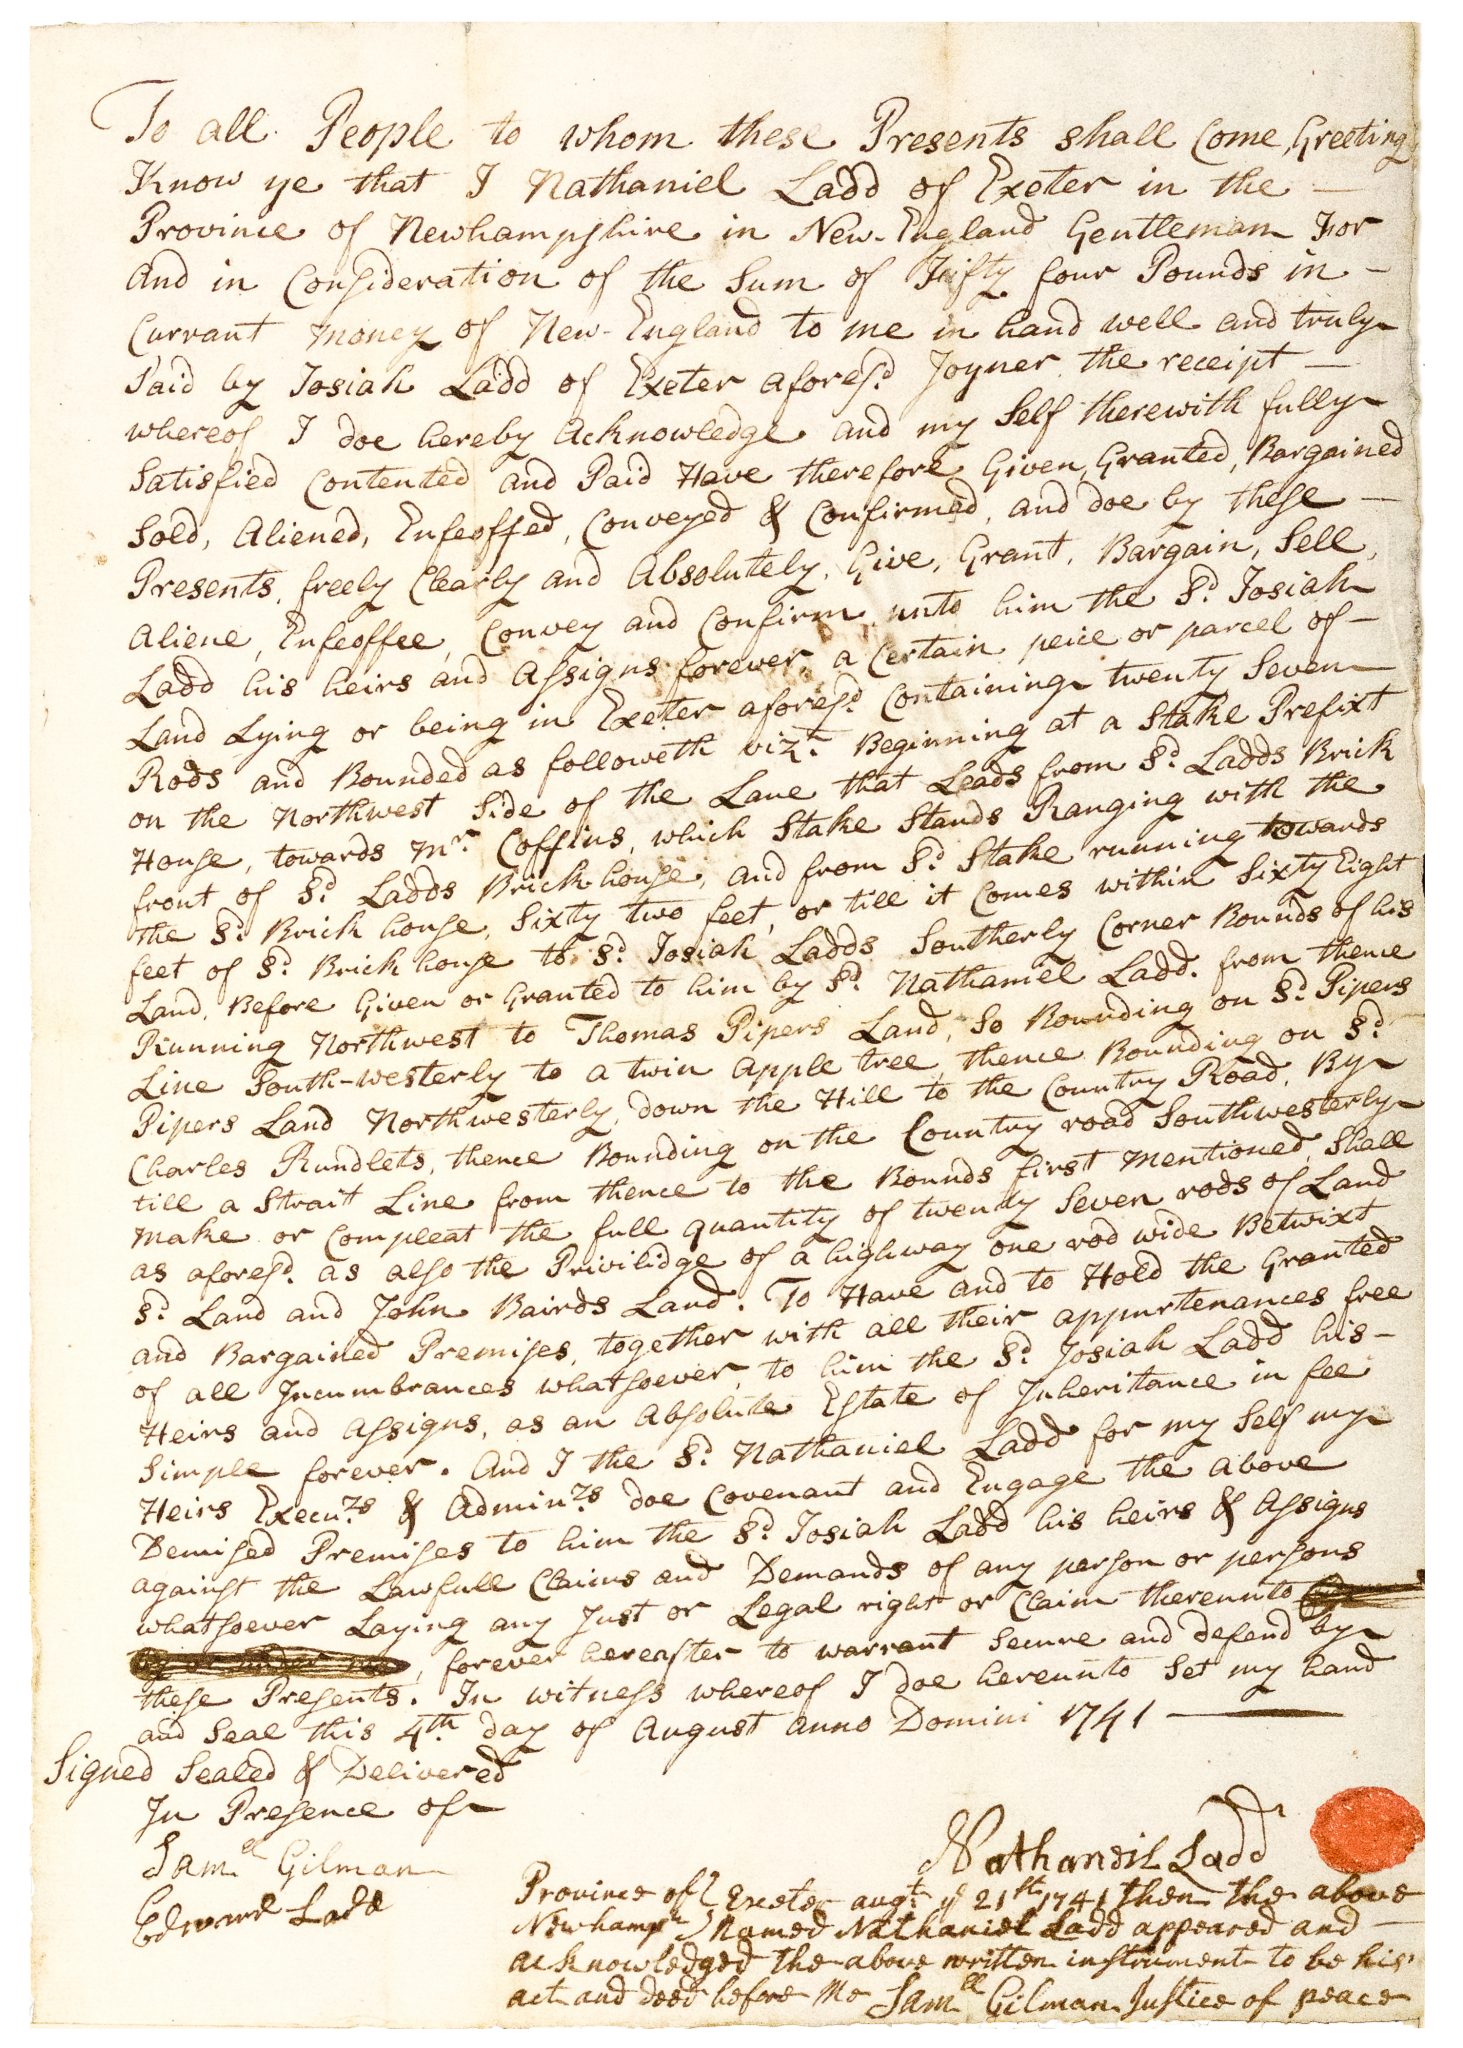 To all People to whom these Presents shall Come, Greeting
Know ye that I Nathaniel Ladd of Exeter in the —
Province of Newhampshire in New-England Gentleman For
and in Consideration of the Sum of Fifty four Pounds in —
Currant money of New-England to me in hand well and truly
Paid by Josiah Ladd of Exeter aforesd. Joyner the receipt —
whereof I doe hereby acknowledge and my Self therewith fully
Satisfied Contented and Paid Have therefore Given, Granted, Bargained
Sold, Aliened, Enfeoffed, Conveyed & Confirmed, and doe by these —
Presents, freely Clearly and Absolutely, Give, Grant, Bargain, Sell,
Aliene, Enfeoffee, Convey and Confirm unto him the Sd. Josiah
Ladd his heirs and Assigns forever, a Certain peice or parcel of —
Land Lying or being in Exeter aforesd. Containing twenty Seven
Rods and Bounded as followeth vizt. Beginning at a Stake Prefixt
on the Northwest Side of the Lane that Leads from Sd. Ladds Brick
House, towards Mr. Coffins, which Stake Stands Ranging with the
front of Sd. Ladds Brick house, and from Sd. Stake running towards
the Sd. Brick house, Sixty two feet, or till it Comes within Sixty Eight
feet of Sd. Brick house to Sd. Josiah Ladds Southerly Corner Bounds of his
Land, Before Given or Granted to him by Sd. Nathaniel Ladd. from thence
Running Northwest to Thomas Pipers Land, So Bounding on Sd. Pipers
Line South-westerly to a twin Apple tree, thence Bounding on Sd.
Pipers Land Northwesterly, down the Hill to the Country Road, By
Charles Rundlets, thence Bounding on the Country road Southwesterly
till a Strait Line from thence to the Bounds first mentioned, Shall
make or Compleat the full quantity of twenty Seven rods of Land
as aforesd. as also the Privilidge of a highway one rod wide Betwixt
Sd. Land and John Bairds Land. To Have and to Hold the Granted
and Bargained Premises, together with all their appurtenances free
of all Incumbrances whatsoever, to him the Sd. Josiah Ladd his —
Heirs and Assigns, as an Absolute Estate of Inheritance in fee
Simple forever. And I the Sd. Nathaniel Ladd for my Self my
Heirs Execurs & Adminrs doe Covenant and Engage the above
Demised Premises to him the Sd. Josiah Ladd his heirs & Assigns
against the Lawfull Claims and Demands of any person or persons
whatsoever Laying any Just or Legal right or Claim thereunto
, forever hereafter to warrant Secure and defend by
these Presents. In witness whereof I doe hereunto Set my hand
and Seal this 4th. day of August anno Domini 1741 —
Signed Sealed & Delivered
In Presence of
Samel Gilman
Edward Ladd
Nathaneil Ladd
Province of } Exeter augt. ye 21st 1741 then the above
Newhampr } Named Nathaniel Ladd appeared and —
acknowledged the above written instrument to be his
act and deed before Me Samell Gilman Justice of peace